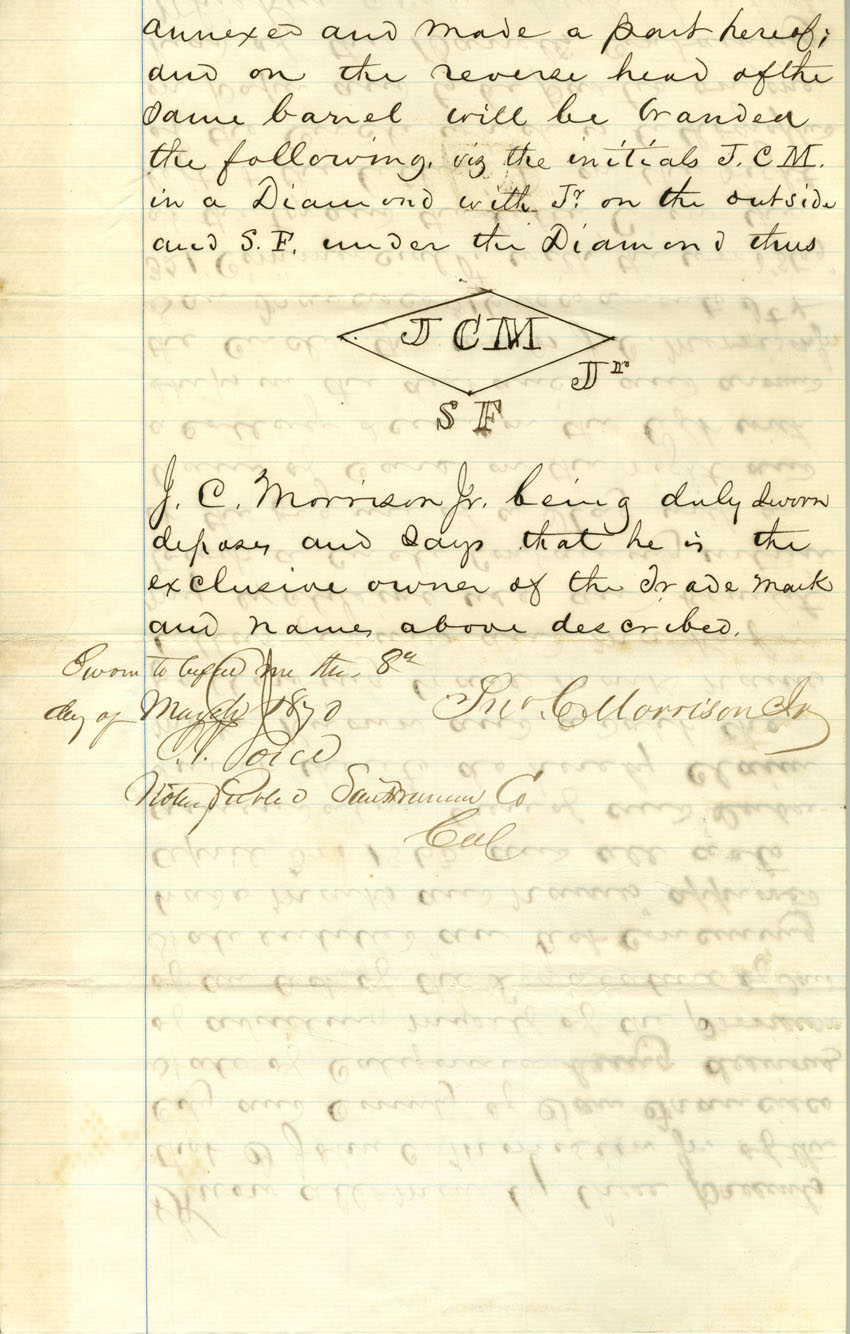 annexed and made a part hereof;
and on the reverse head of the
same barrel will be branded
the following, viz the initials J. C M.
in a Diamond with Jr on the outside
and S. F. under the Diamond thus
J C M
Jr
S F
J. C. Morrison Jr. being duly sworn
deposes and says that he is the
exclusive owner of the Trade mark
and names above described.
Sworn to before me this 8th
day of March 1870
Jno. C Morrison Jr
Notary Public San Francisco Co
Cal